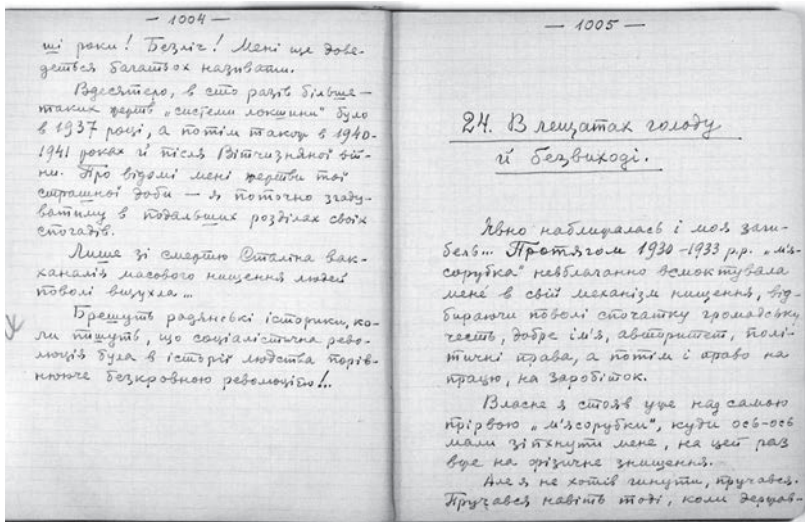 — 1004 —
ші роки! Безліч! Мені ще дове-
деться багатьох називати.
Вдесятеро, в сто разів більше —
таких жертв „системи локшини" було
в 1937 році, а потім також в 1940-
1941 роках й після Вітчизняної вій-
ни. Про відомі мені жертви тої
страшної доби — я поточно згаду-
ватиму в подальших розділах своїх
спогадів.
Лише зі смертю Сталіна вак-
ханалія масового нищення людей
поволі вщухла...
Брешуть радянські історики, ко-
ли пишуть, що соціалістична рево-
люція була в історії людства порів-
нююче безкровною революцією!..
— 1005 —
24. В лещатах голоду
й безвиході.
Явно наближалась і моя заги-
бель... Протягом 1930-1933 р.р. „м'я-
сорубка" невблаганно всмоктувала
мене́ в свій механізм нищення, від-
бираючи поволі спочатку громадську
честь, добре ім'я, авторитет, полі-
тичні права, а потім і право на
працю, на заробіток.
Власне я стояв уже над самою
прірвою „м'ясорубки", куди ось-ось
мали зіпхнути мене, на цей раз
вже на фізичне знищення.
Але я не хотів гинути, пручався.
Пручався навіть тоді, коли держав-